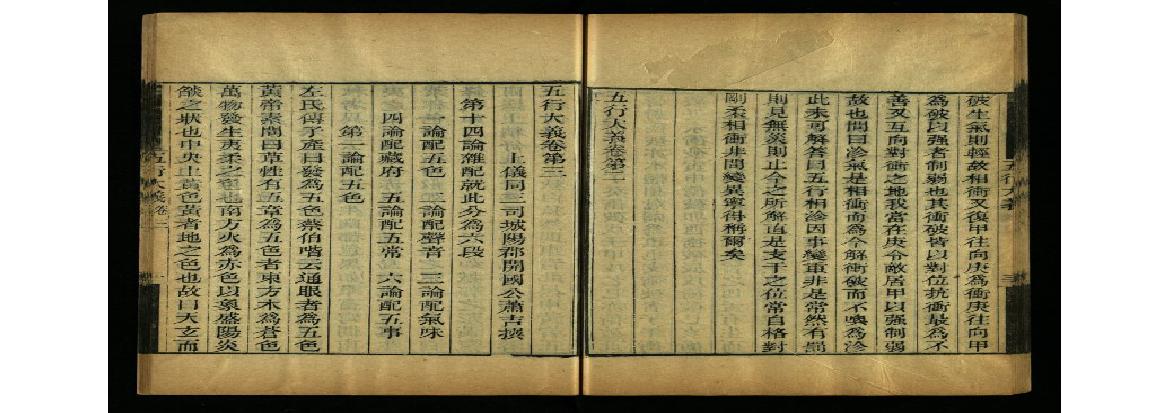 破生氣則輕故相衝又復甲往向庚為衝庚往向甲
為破以强者制弱也其衝破皆以對位抗衝最為不
善又互向對衝之地我當在庚令敵居甲以强制弱
故也問曰沴氣是相衝而為今解衝破而不喚為沴
此未可解答曰五行相沴因事變重非是常然有罰
則見無災則止今之所解直是支干之位常自格對
剛柔相衝非問變異寧得稱爾矣
五行大義卷第二
五行大義卷第三
上儀同三司城陽郡開國公蕭吉撰
第十四論雜配就此分為六段
一論配五色 二論配聲音 三論配氣味
四論配藏府 五論配五常 六論配五事
第一論配五色
左氏傳子產曰發為五色蔡伯喈云通眼者為五色
黃帝素問曰草性有五章為五色者東方木為蒼色
萬物發生夷柔之色也南方火為赤色以象盛陽炎
燄之狀也中央土黃色黃者地之色也故曰天玄而